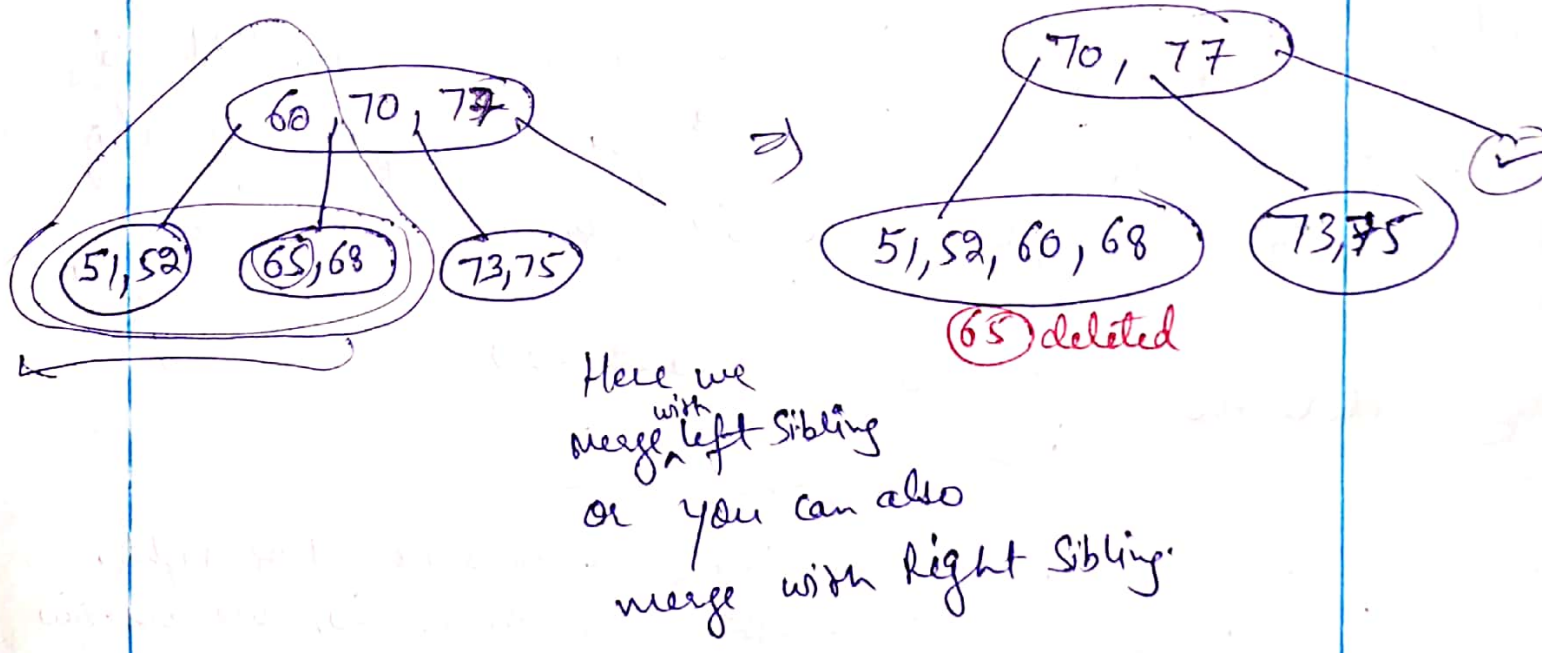 60, 70, 77
70, 77
51,52
65,68
73,75
51,52,60,68
73,75
65 deleted
Here we
merge with left Sibling
or you can also
merge with Right Sibling.